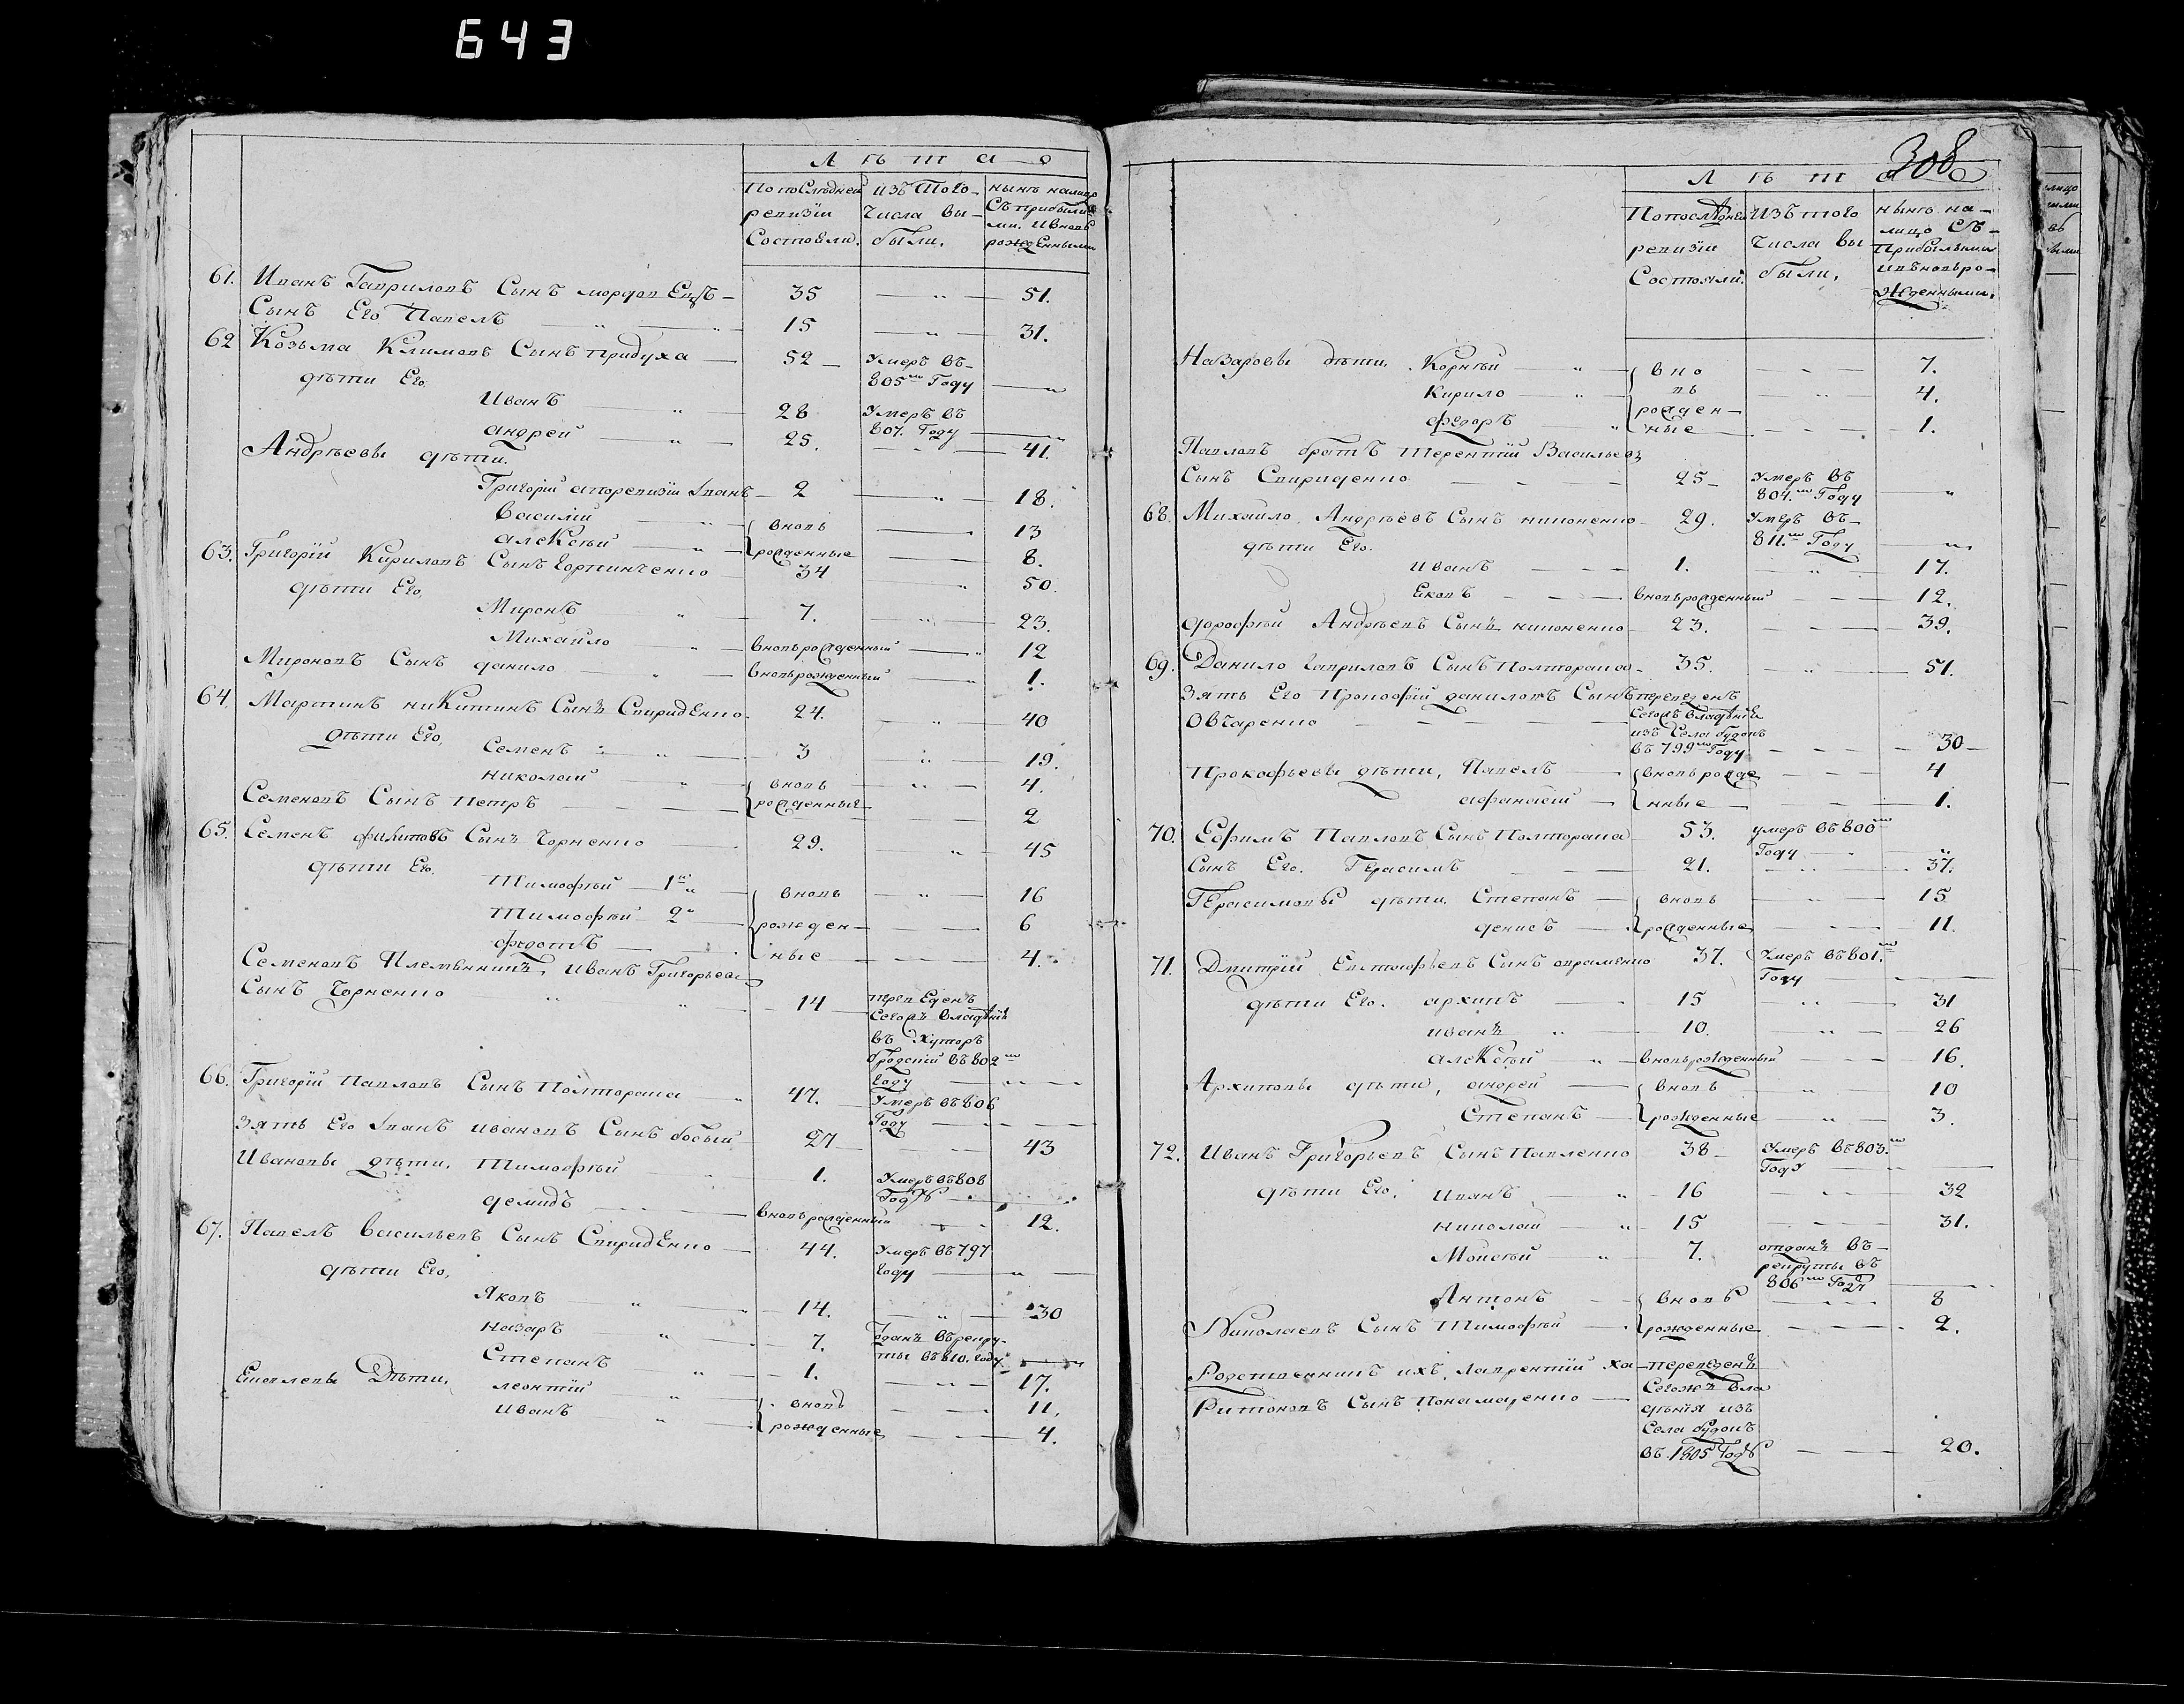 643
Лѣта
По послѣдней ревизіи Состояли. изъ того числа выбыли. нынѣ налицо Съ прибылыми. и вновь рожденными
61. Иванъ Гавриловъ Сынъ 35 — 51.
Сынъ Его Павелъ 15 — 31.
62 Козьма Климовъ Сынъ придуха 52 Умеръ въ 805мъ Году —
дѣти Его.
Иванъ 28 Умеръ въ 807. Году —
андрей 25. — 41.
Андрѣевы дѣти.
Григорій 2 — 18.
василий { вновь — 13
алексѣй { рожденные — 8.
63. Григорій Кириловъ Сынъ 34 50.
дѣти Его,
Миронъ 7. — 23.
Михайло вновьрожденный — 12
Мироновъ Сынъ данило вновьрожденный 1.
64. Мартинъ никитинъ Сынъ Спириденко 24. — 40
дѣти Его,
Семенъ 3 19.
николай { вновь — 4.
Семеновъ Сынъ петръ { рожденные — 2
65. Семенъ Сынъ Чорненко 29. — 45
дѣти Его.
Тимофѣй 1й { вновь — 16
Тимофѣй 2й { рожден- — 6
федотъ { ные — 4.
Семеновъ Племянникъ, иванъ Григорьевъ
Сынъ Чорненко 14 переведенъ Сегожъ владѣнія въ Хуторъ въ 802мъ году —
66. Григорій павловъ Сынъ Полторака 47. Умеръ въ 806 Году —
зять Его Іванъ ивановъ Сынъ босый 27 — 43
Ивановы дѣти, Тимофѣй 1. Умеръ въ 808 Году —
демидъ вновьрожденный — 12.
67. Павелъ васильевъ Сынъ Спириденко 44. Умеръ въ 797 году —
дѣти Его,
Яковъ 14. — 30
назаръ 7. Оданъ въ рекруты въ 810. году —
Степанъ 1. — 17.
Яковлевы Дѣти, леонтій { вновь — 11,
иванъ { рожденные — 4.
308
Лѣта
По послѣдней ревизіи Состояли. Изъ того числа выбыли, нынѣ на-лицо Съ-Прибылыми ивновьро-жденными.
Назаровы дѣти, Корнѣй { вно — 7.
Кирило { вь — 4.
федоръ { рожден-ные — 1.
Павловъ братъ Терентій Васильевъ
Сынъ Спириденко 25 Умеръ въ 804.мъ Году —
68. Михайло Андрѣевъ Сынъ никоненко 29. Умеръ въ 811.мъ Году —
дѣти Его.
иванъ 1. — 17.
Яковъ вновьрожденный — 12.
дорофѣй Андрѣевъ Сынъ никоненко 23. — 39.
69. Данило гавриловъ Сынъ Полторака 35. — 51.
зять Его Прокофій даниловъ Сынъ переведенъ
Овчаренко Сегожъ владѣнія изъ Села будокъ въ 799мъ Году — 30
Прокофьевы дѣти, Павелъ { вновьрожде — 4
афанасій { нные — 1.
70. Ефимъ Павловъ Сынъ Полторака 53. умеръ въ 800мъ Году —
Сынъ Его. Герасимъ 21. — 37.
Герасимовы дѣти, Степанъ { вновь — 15
денисъ { рожденные — 11.
71. Дмитрій Евтиофьевъ Сынъ авраменко 37. Умеръ въ 801.мъ Году —
дѣти Его. архипъ 15 — 31
иванъ 10. — 26
алексѣй вновьрожденный — 16.
Архиповы дѣти, андрей { вновь — 10
Степанъ { рожденные — 3.
72. Иванъ Григорьевъ Сынъ Павленко 38 Умеръ въ 803.мъ Году —
дѣти Его, иванъ 16 — 32
николай 15 — 31.
Моисѣй 7. отданъ въ рекруты въ 806мъ Году —
Антонъ { вновь — 8
Николаевъ Сынъ Тимофѣй { рожденные — 2.
Родственникъ ихъ, лаврентій ха-
ритоновъ Сынъ Понамаренко переведенъ Сегожъ владѣнія изъ Села будокъ въ 1805 Году — 20.